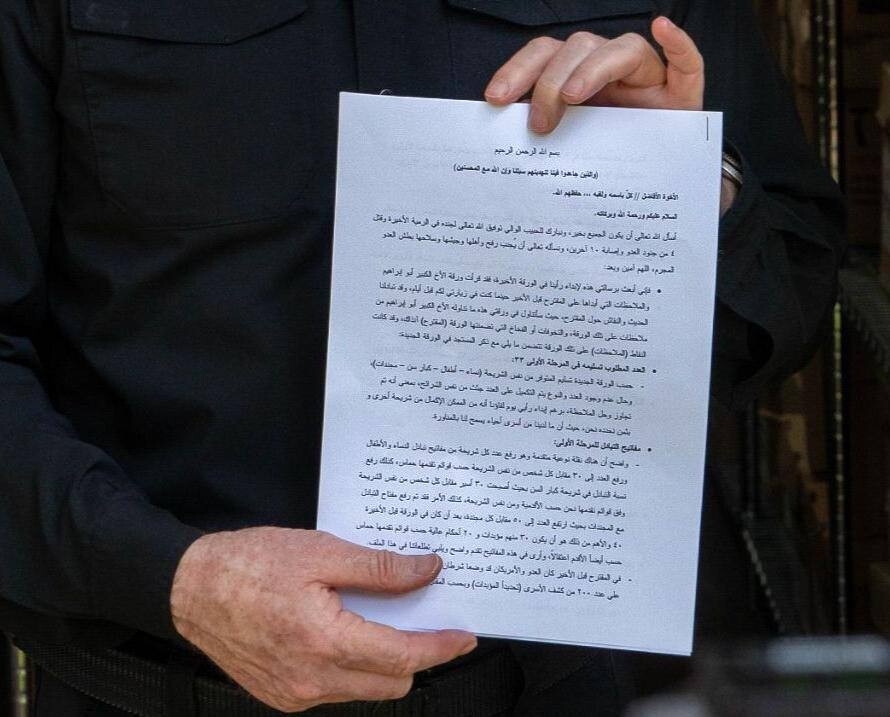 بسم الله الرحمن الرحيم
(والذين جاهدوا فينا لنهدينهم سبلنا وإن الله مع المحسنين)
الأخوة الأفاضل // كلّ باسمه ولقبه ... حفظهم الله.
السلام عليكم ورحمة الله وبركاته.
أسأل الله تعالى أن يكون الجميع بخير، ونبارك للحبيب الوالي توفيق الله تعالى لجنده في الرمية الأخيرة وقتل
٤ من جنود العدو وإصابة ١٠ آخرين، ونسأله تعالى أن يُجنب رفح وأهلها وجيشها وسلاحها بطش العدو
المجرم، اللهم آمين وبعد:
• فإني أبعث برسالتي هذه لإبداء رأينا في الورقة الأخيرة، فقد قرأت ورقة الأخ الكبير أبو إبراهيم
والملاحظات التي أبداها على المقترح قبل الأخير حينما كنت في زيارتي لكم قبل أيام، وقد تبادلنا
الحديث والنقاش حول المقترح، حيث سأتناول في ورقتي هذه ما تناوله الأخ الكبير أبو إبراهيم من
ملاحظات على تلك الورقة، والتخوفات أو الفخاخ التي تضمنتها الورقة (المقترح) آنذاك، وقد كانت
النقاط (الملاحظات) على تلك الورقة تتضمن ما يلي مع ذكر المستجد في الورقة الجديدة:
• العدد المطلوب تسليمه في المرحلة الأولى ٣٣:
- حسب الورقة الجديدة تسليم المتوفر من نفس الشريحة (نساء – أطفال – كبار سن – مجندات)،
وحال عدم وجود العدد والنوع يتم التكميل على العدد جثث من نفس الشرائح، بمعنى أنه تم
تجاوز وحل الملاحظة، برغم إبداء رأيي يوم لقاؤنا أنه من الممكن الإكمال من شريحة أخرى و
بثمن نحدده نحن، حيث أن ما لدينا من أسرى أحياء يسمح لنا بالمناورة.
• مفاتيح التبادل للمرحلة الأولى:
- واضح أن هناك نقلة نوعية متقدمة وهو رفع عدد كل شريحة من مفاتيح تبادل النساء والأطفال
ورفع العدد إلى ٣٠ مقابل كل شخص من نفس الشريحة حسب قوائم تقدمها حماس، كذلك رفع
نسبة التبادل في شريحة كبار السن بحيث أصبحت ٣٠ أسير مقابل كل شخص من نفس الشريحة
وفق قوائم نقدمها نحن حسب الأقدمية ومن نفس الشريحة، كذلك الأمر فقد تم رفع مفتاح التبادل
مع المجندات بحيث ارتفع العدد إلى ٥٠ مقابل كل مجندة، بعد أن كان في الورقة قبل الأخيرة
٤٠ والأهم من ذلك هو أن يكون ٣٠ منهم مؤبدات و ٢٠ أحكام عالية حسب قوائم تقدمها حماس
حسب أيضاً الأقدم اعتقالاً، وأرى في هذه المفاتيح تقدم واضح ويلبي تطلعاتنا في هذا الملف.
- في المقترح قبل الأخير كان العدو والأمريكان قد وضعا شرطان
على عدد ٢٠٠ من كشف الأسرى (تحديداً المؤبدات) وبحسب